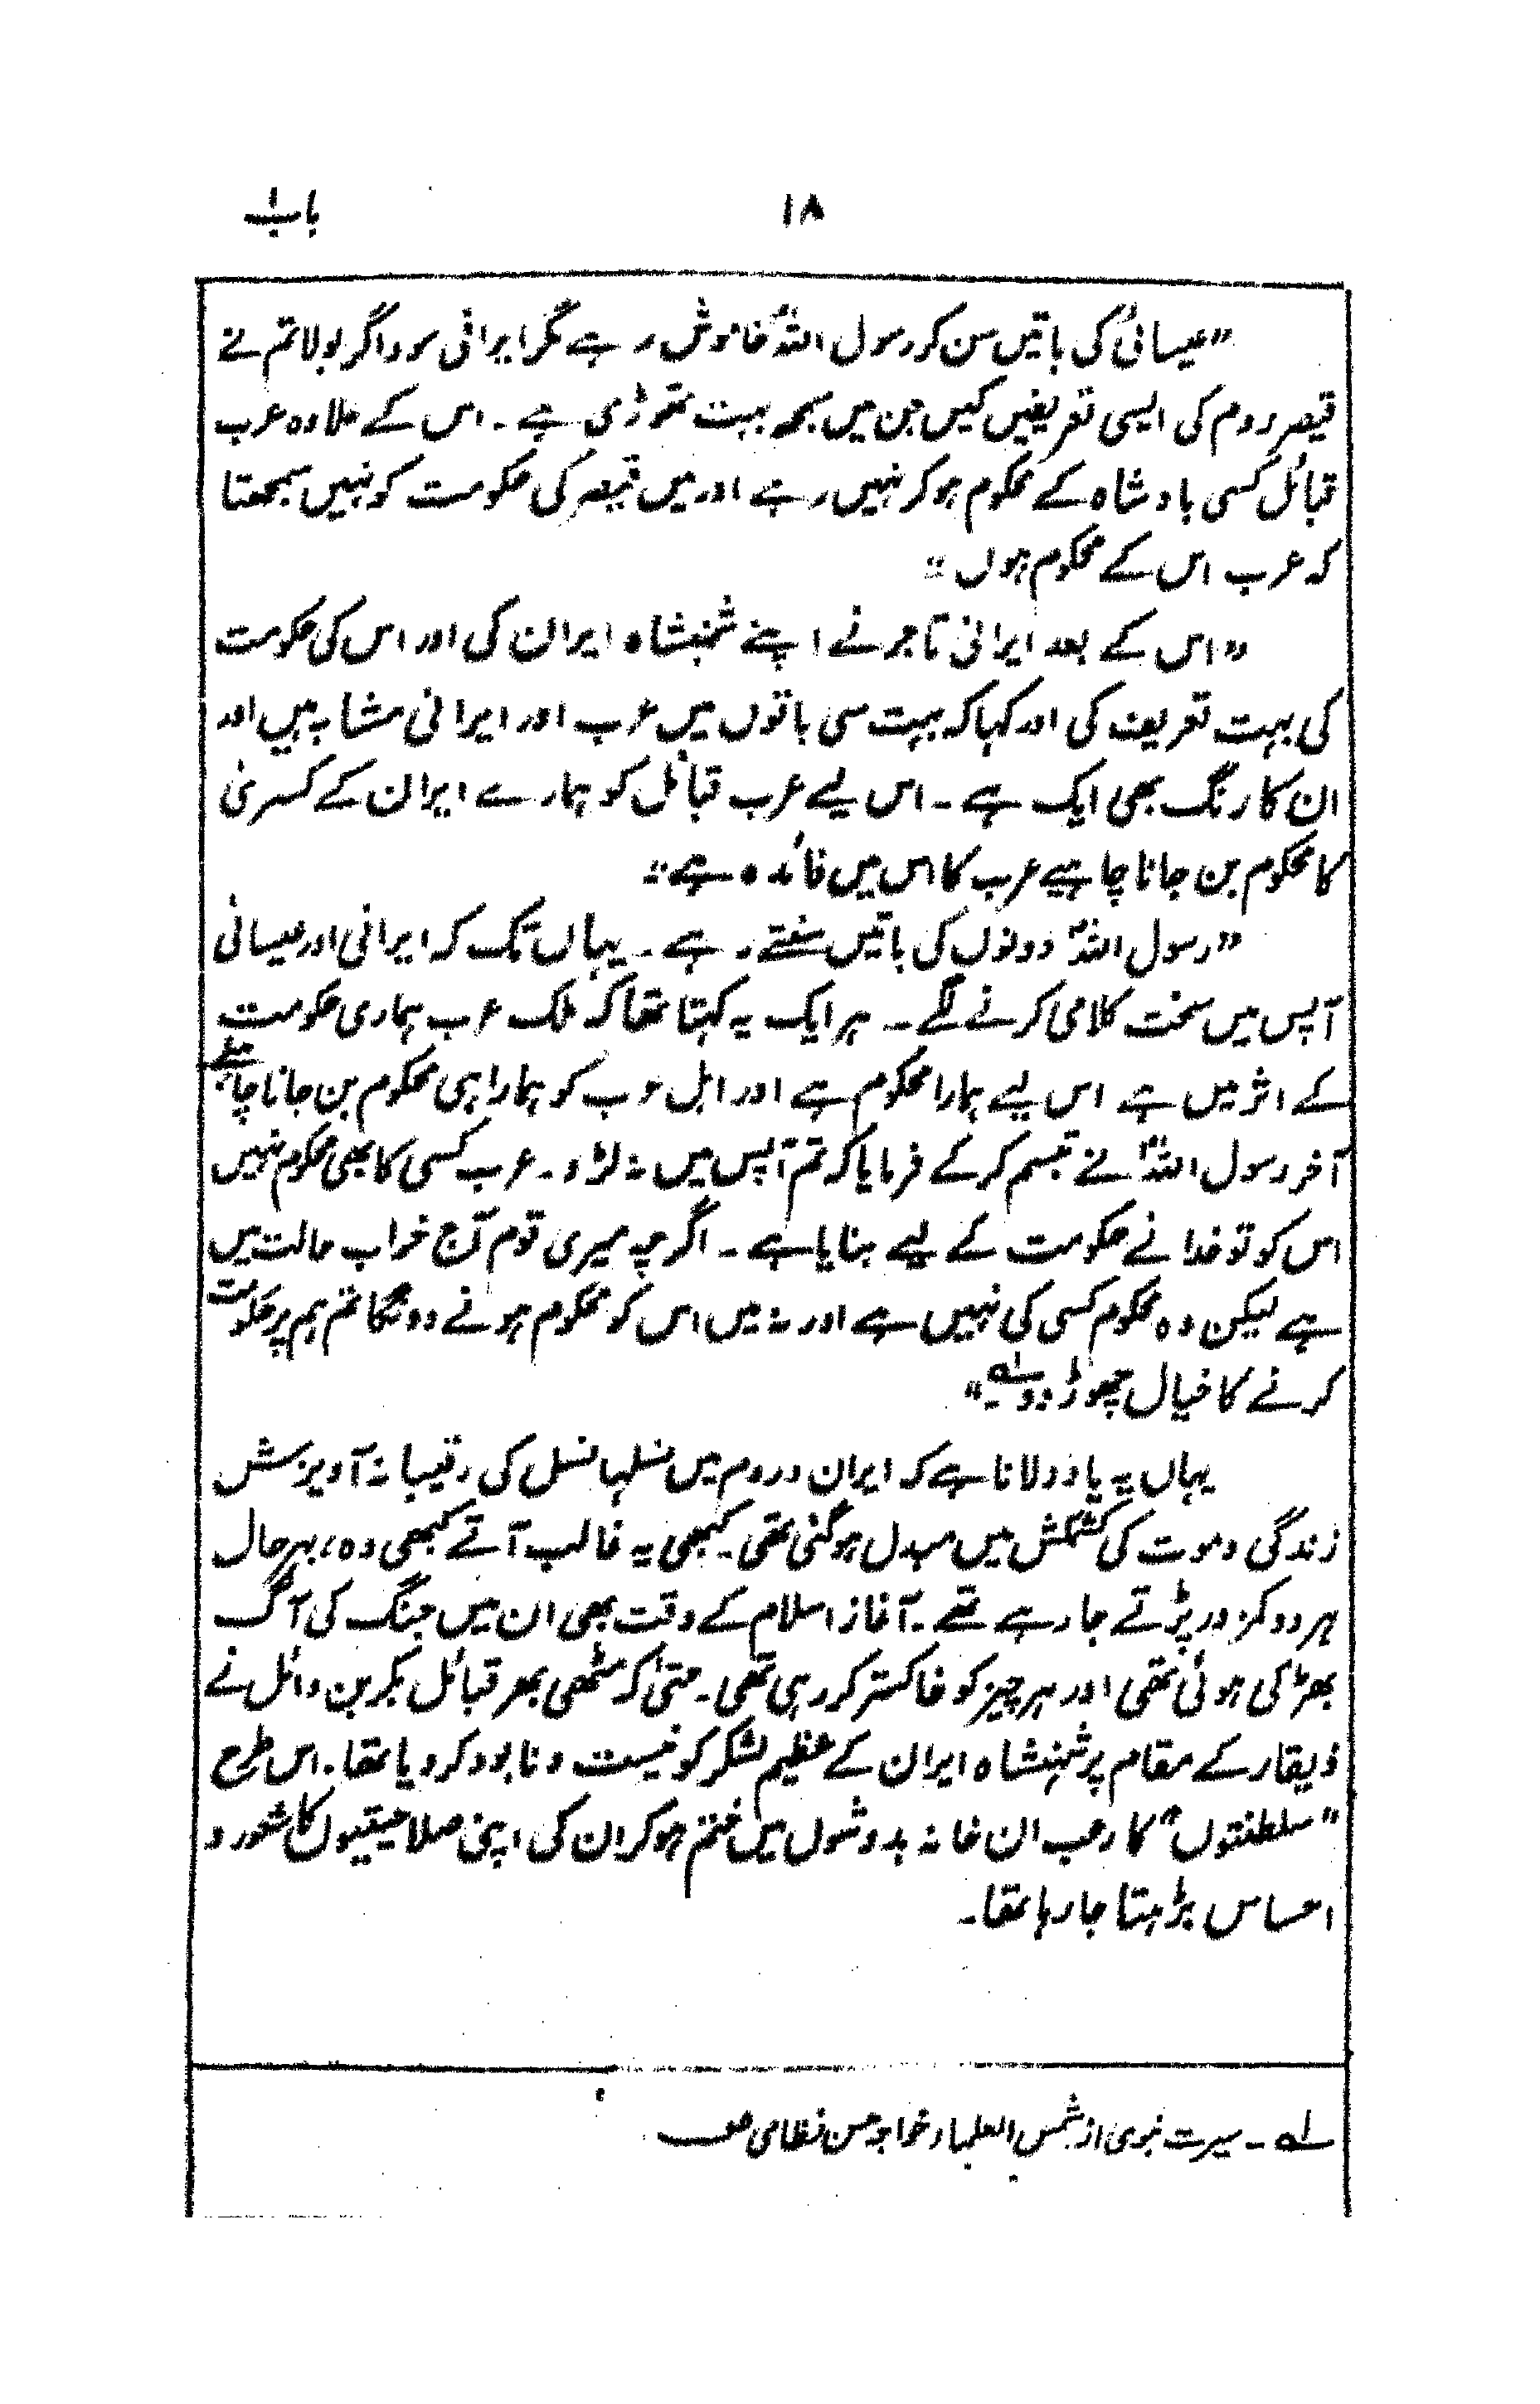 ۱۸
باب ۱
"عیسائی کی باتیں سن کر رسول اللہؐ خاموش رہے مگر ایرانی سوداگر بولا تم نے
قیصر روم کی ایسی تعریفیں کیں جن میں سچ بہت تھوڑی ہے ۔ اس کے علاوہ عرب
قبائل کسی بادشاہ کے محکوم ہو کر نہیں رہے اور میں قیصر کی حکومت کو نہیں سمجھتا
کہ عرب اس کے محکوم ہوں"
"اس کے بعد ایرانی تاجر نے اپنے شہنشاہ ایران کی اور اس کی حکومت
کی بہت تعریف کی اور کہا کہ بہت سی باتوں میں عرب اور ایرانی مشابہ ہیں اور
ان کا رنگ بھی ایک ہے ۔ اس لیے عرب قبائل کو ہمارے ایران کے کسریٰ
کا محکوم بن جانا چاہیے عرب کا اس میں فائدہ ہے"
"رسول اللہؐ دونوں کی باتیں سنتے رہے ۔ یہاں تک کہ ایرانی اور عیسائی
آپس میں سخت کلامی کرنے لگے ۔ ہر ایک یہ کہتا تھا کہ ملک عرب ہماری حکومت
کے اثر میں ہے اس لیے ہمارا محکوم ہے اور اہل عرب کو ہمارا ہی محکوم بن جانا چاہیے
آخر رسول اللہؐ نے تبسم کر کے فرمایا کہ تم آپس میں نہ لڑو ۔ عرب کسی کا بھی محکوم نہیں
اس کو تو خدا نے حکومت کے لیے بنایا ہے ۔ اگرچہ میری قوم آج خراب حالت میں
ہے لیکن وہ محکوم کسی کی نہیں ہے اور نہ میں اس کو محکوم ہونے دونگا تم ہم پر حکومت
کرنے کا خیال چھوڑ دو لہ"
یہاں یہ یاد دلانا ہے کہ ایران و روم میں نسلہا نسل کی رقیبانہ آویزش
زندگی و موت کی کشمکش میں مبدل ہو گئی تھی ۔ کبھی یہ غالب آتے کبھی وہ، بہر حال
ہر دو کمزور پڑتے جا رہے تھے ۔ آغاز اسلام کے وقت بھی ان میں جنگ کی آگ
بھڑکی ہوئی تھی اور ہر چیز کو خاکستر کر رہی تھی ۔ حتیٰ کہ مٹھی بھر قبائل بکر بن وائل نے
ذیقار کے مقام پر شہنشاہ ایران کے عظیم لشکر کو نیست و نابود کر دیا تھا ۔ اس طرح
"سلطنتوں" کا رعب ان خانہ بدوشوں میں ختم ہو کر ان کی اپنی صلاحیتیوں کا شعور و
احساس بڑہتا جا رہا تھا ۔
لہ ۔ سیرت نبوی از شمس العلماء خواجہ حسن نظامی